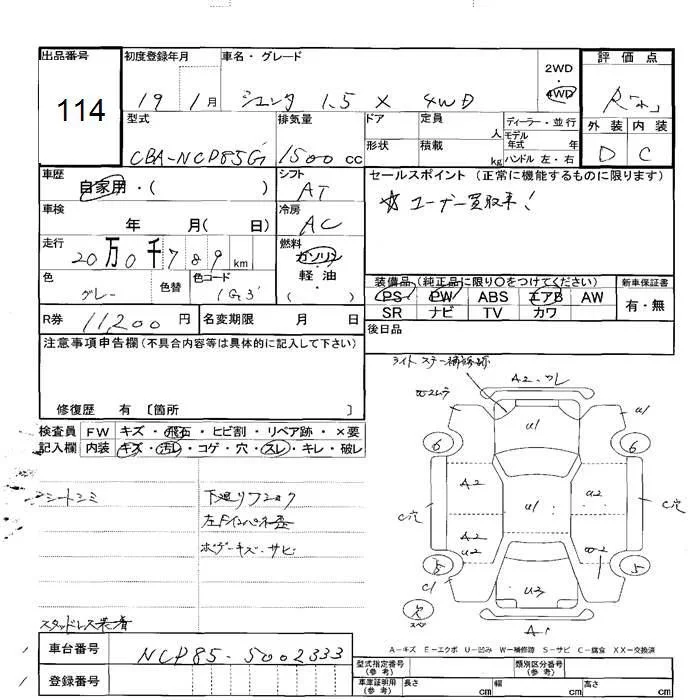 出品番号 初度登録年月 車名・グレード 2WD・4WD 評価点
114 19 1月 シエンタ 1.5 X 4WD R
型式 排気量 ドア 定員 人 ディーラー・並行 外装 内装
CBA-NCP85G 1500cc 形状 積載 kg モデル年式 年 ハンドル 左・右 D C
車歴 自家用・( ) シフト AT セールスポイント (正常に機能するものに限ります)
車検 年 月( 日) 冷房 AC ☆ユーザー買取車!
走行 20万0千789km 燃料 ガソリン 軽・油 ( )
色 グレー 色替 色コード 1G3
装備品 (純正品に限り○をつけてください) 新車保証書
PS PW ABS エアB AW 有・無
SR ナビ TV カワ
R券 11,200円 名変期限 月 日 後日品
注意事項申告欄 (不具合内容等は具体的に記入して下さい)
修復歴 有 〔箇所 〕
検査員記入欄 FW キズ・飛石・ヒビ割・リペア跡・×要
内装 キズ・汚レ・コゲ・穴・スレ・キレ・破レ
シートシミ
下廻リフロック
ボデーキズ・サビ
スタッドレス装着
ライトステー補修跡
A2・ワレ
U1 U1
6 6
A2 U1 U2
C穴 C穴
A2 U2
5 5
C1 U3
欠
スペ
A1
A-キズ E-エクボ U-凹み W-補修跡 S-サビ C-腐食 XX-交換済
車台番号 NCP85-5002333
登録番号
型式指定番号(参考) 類別区分番号(参考)
車庫証明用(参考) 長さ cm 幅 cm 高さ cm